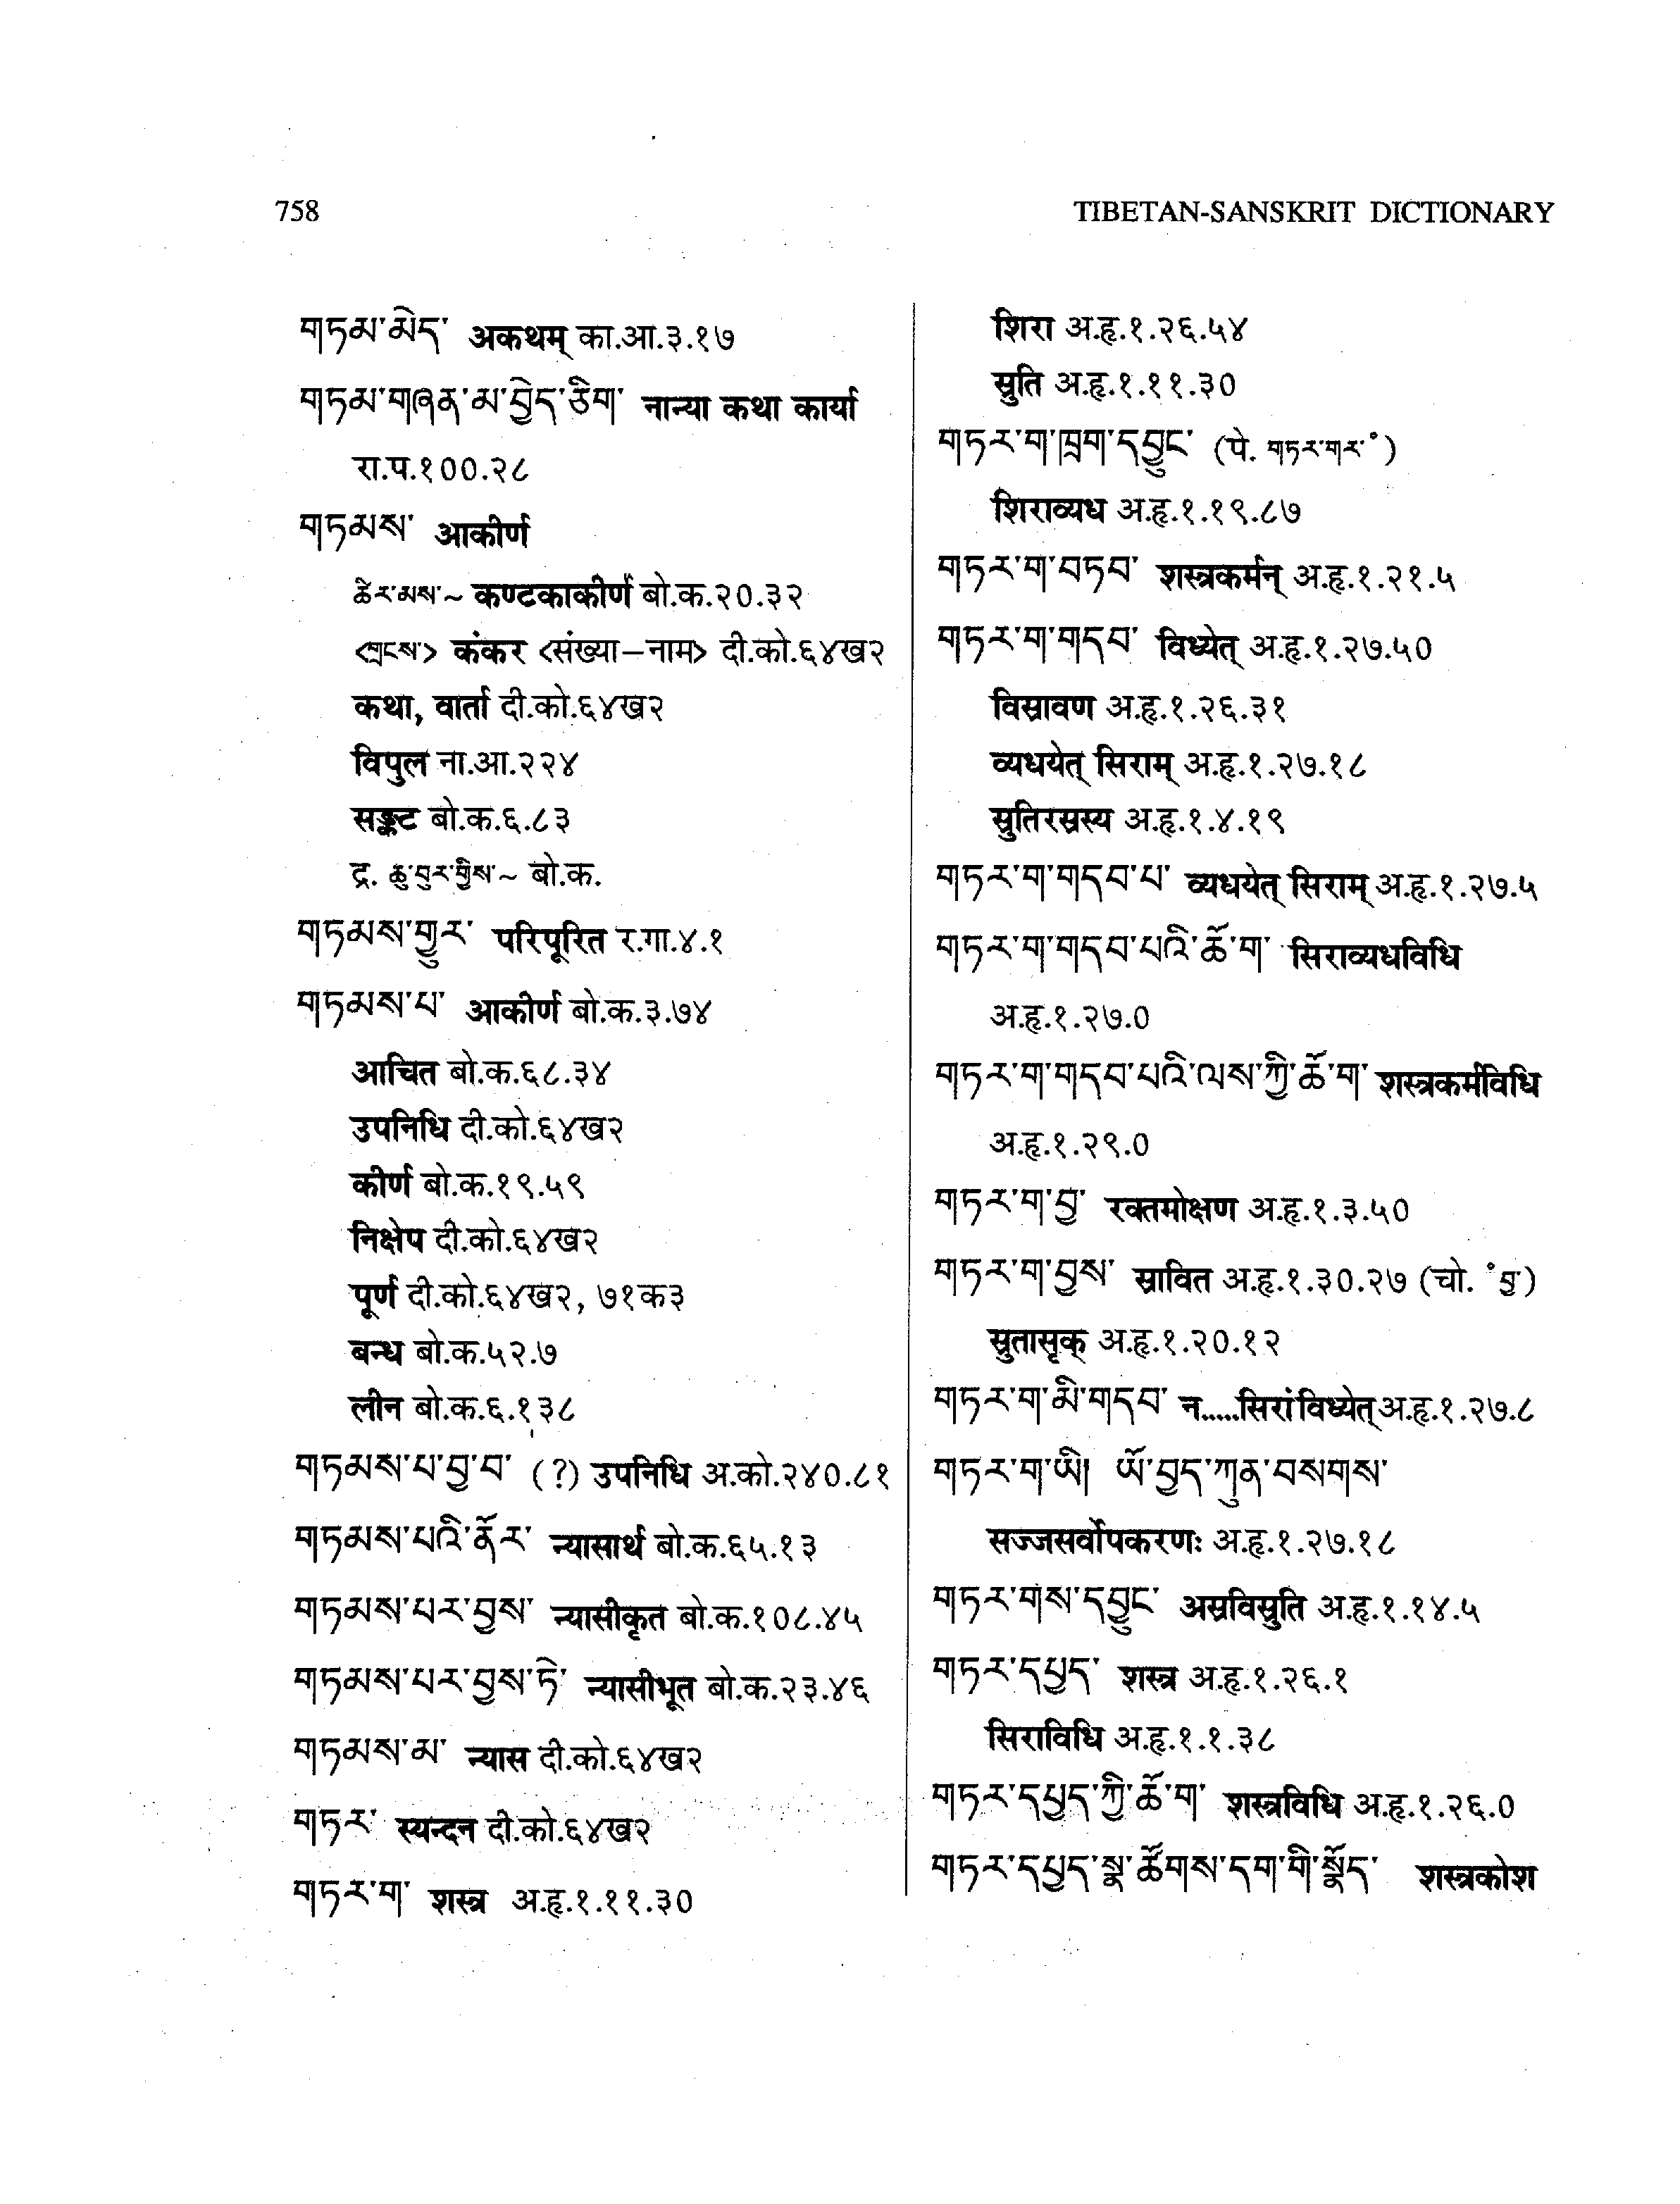 758
TIBETAN-SANSKRIT DICTIONARY
གཏམ་མེད་ अकथम् का.आ.३.१७
གཏམ་གཞན་མ་བྱེད་ཅིག་ नान्या कथा कार्या
रा.प.१००.२८
གཏམས་ आकीर्ण
ཚེར་མས་~ कण्टकाकीर्ण बो.क.२०.३२
<གྲངས་> कंकर <संख्या–नाम> दी.को.६४ख२
कथा, वार्ता दी.को.६४ख२
विपुल ना.आ.२२४
सङ्कट बो.क.६.८३
द्र. ཆུ་བུར་གྱིས་~ बो.क.
གཏམས་གྱུར་ परिपूरित र.गा.४.१
གཏམས་པ་ आकीर्ण बो.क.३.७४
आचित बो.क.६८.३४
उपनिधि दी.को.६४ख२
कीर्ण बो.क.१९.५९
निक्षेप दी.को.६४ख२
पूर्ण दी.को.६४ख२, ७१क३
बन्ध बो.क.५२.७
लीन बो.क.६.१३८
གཏམས་པ་བྱ་བ་ (?) उपनिधि अ.को.२४०.८१
གཏམས་པའི་ནོར་ न्यासार्थ बो.क.६५.१३
གཏམས་པར་བྱས་ न्यासीकृत बो.क.१०८.४५
གཏམས་པར་བྱས་ཏེ་ न्यासीभूत बो.क.२३.४६
གཏམས་མ་ न्यास दी.को.६४ख२
གཏར་ स्यन्दन दी.को.६४ख२
གཏར་ག་ शस्त्र अ.हृ.१.११.३०
शिरा अ.हृ.१.२६.५४
स्रुति अ.हृ.१.११.३०
གཏར་ག་ཁྲག་དབྱུང་ (पे. གཏར་གར་॰)
शिराव्यध अ.हृ.१.१९.८७
གཏར་ག་བཏབ་ शस्त्रकर्मन् अ.हृ.१.२१.५
གཏར་ག་གདབ་ विध्येत् अ.हृ.१.२७.५०
विस्रावण अ.हृ.१.२६.३१
व्यधयेत् सिराम् अ.हृ.१.२७.१८
स्रुतिरस्रस्य अ.हृ.१.४.१९
གཏར་ག་གདབ་པ་ व्यधयेत् सिराम् अ.हृ.१.२७.५
གཏར་ག་གདབ་པའི་ཆོ་ག་ सिराव्यधविधि
अ.हृ.१.२७.०
གཏར་ག་གདབ་པའི་ལས་ཀྱི་ཆོ་ག་ शस्त्रकर्मविधि
अ.हृ.१.२९.०
གཏར་ག་བྱ་ रक्तमोक्षण अ.हृ.१.३.५०
གཏར་ག་བྱས་ स्रावित अ.हृ.१.३०.२७ (चो. ॰བྱ་)
स्रुतासृक् अ.हृ.१.२०.१२
གཏར་ག་མི་གདབ་ न.....सिरां विध्येत् अ.हृ.१.२७.८
གཏར་ག་ཡི། ཡོ་བྱད་ཀུན་བསགས་
सज्जसर्वोपकरणः अ.हृ.१.२७.१८
གཏར་གས་དབྱུང་ अस्रविस्रुति अ.हृ.१.१४.५
གཏར་དཔྱད་ शस्त्र अ.हृ.१.२६.१
सिराविधि अ.हृ.१.१.३८
གཏར་དཔྱད་ཀྱི་ཆོ་ག་ शस्त्रविधि अ.हृ.१.२६.०
གཏར་དཔྱད་སྣ་ཚོགས་དག་གི་སྣོད་ शस्त्रकोश